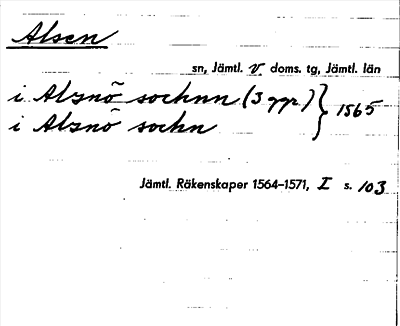 Alsen
sn, Jämtl. v doms. tg, Jämtl. län
i Alznö sochnn (3 ggr.) } 1565
i Alsnö sochn
Jämtl. Räkenskaper 1564–1571, I s. 103